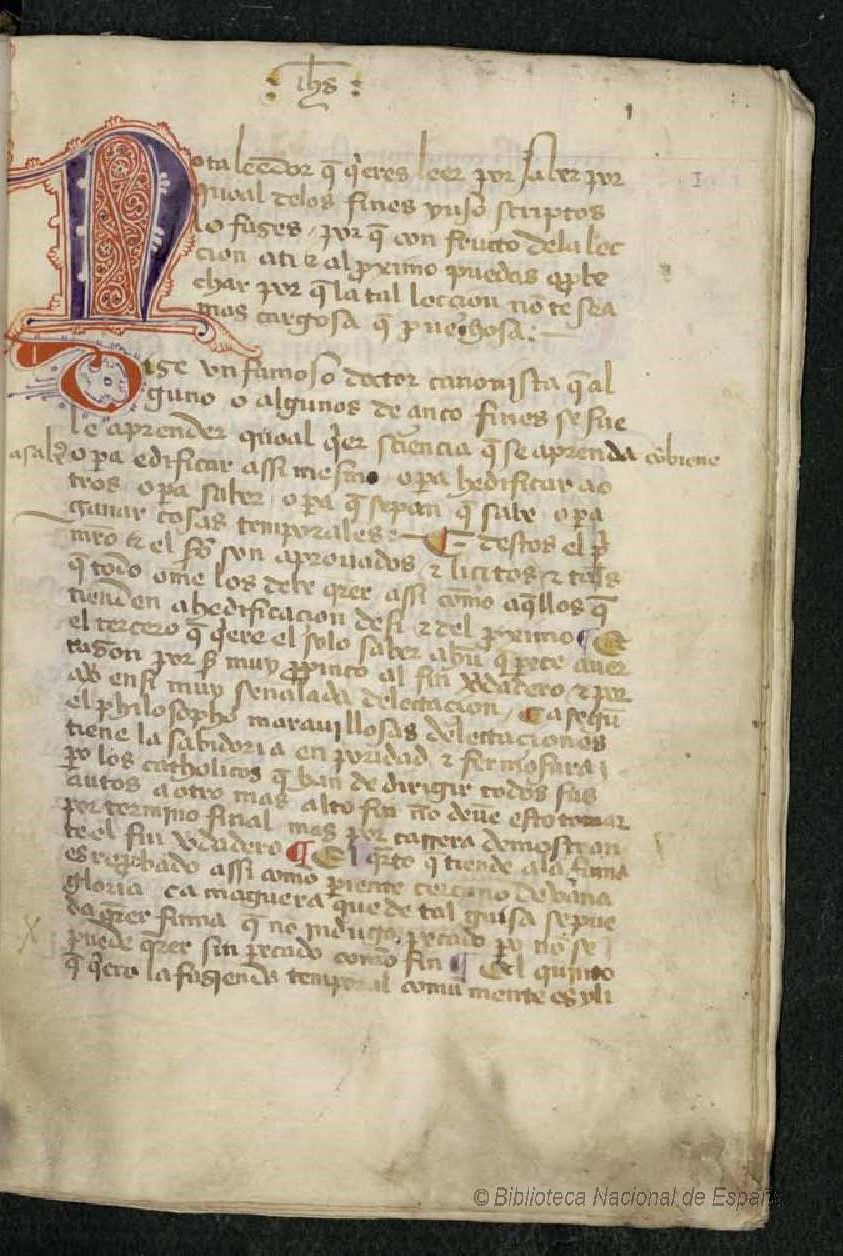 : ihs :
1
I
Nota leedor q̄ q̄eres leer por saber por
qual delos fines yuso scriptos
lo fages / por q̄ con fructo dela lec
cion a ti ⁊ al pximo puedas apꝓue
char por q̄ la tal leccion no te sea
mas cargosa q̄ prouechosa :
Dise vn famoso doctor canonista q̄ al
guno o algunos de cinco fines se sue
le aprender qual q̄er sciencia q̄ se aprenda cōbiene
asabr̄ o pa edificar assi mesmo o pa hedificar ao
tros o pa saber / o pa q̄ sepan q̄ sabe o pa
ganar cosas temporales : ¶ destos el p̄
mero ⁊ el sō son aprouados ⁊ licitos ⁊ tales
q̄ todo ome los debe q̄rer assi como aq̄llos q̄
tienden a hedificacion de si ⁊ del pximo ¶ Et
el tercero q̄ q̄ere el solo saber abn̄ q̄ pece auer
rason por ser muy ꝓpinco al fin v̄dadero ⁊ por
aver en si muy señalada delectacion / ca segū
el philosopho marauillosas delectaciones
tiene la sabidoria en puridad ⁊ fermosura /
po los catholicos q̄ han de dirigir todos sus
autos a otro mas alto fin no deue esto tomar
por termino final mas por carrera demostran
te el fin v̄dadero ¶ El q̄rto q̄ tiende ala fama
es reprobado assi como pariente cercano de vana
gloria ca maguera que de tal guisa se pue
da q̄rer fama q̄ no induga pecado po no se
puede q̄rer sin pecado como fin ¶ El quinto
q̄ q̄ere la fasienda temporal comunmente es yli
© Biblioteca Nacional de España